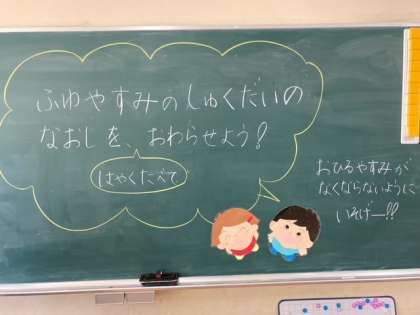 ふゆやすみのしゅくだいの
なおしを、おわらせよう!
はやくたべて
おひるやすみが
なくならないように
いそげー!!